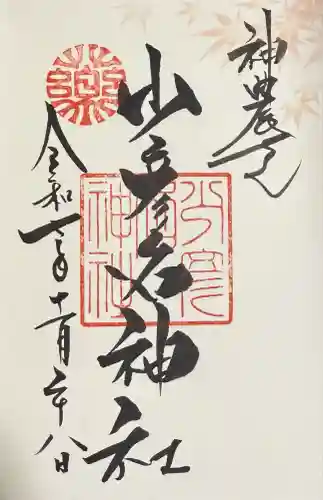 神農さん
少彦名神社
令和二年十一月二十八日
薬
少彦名神社